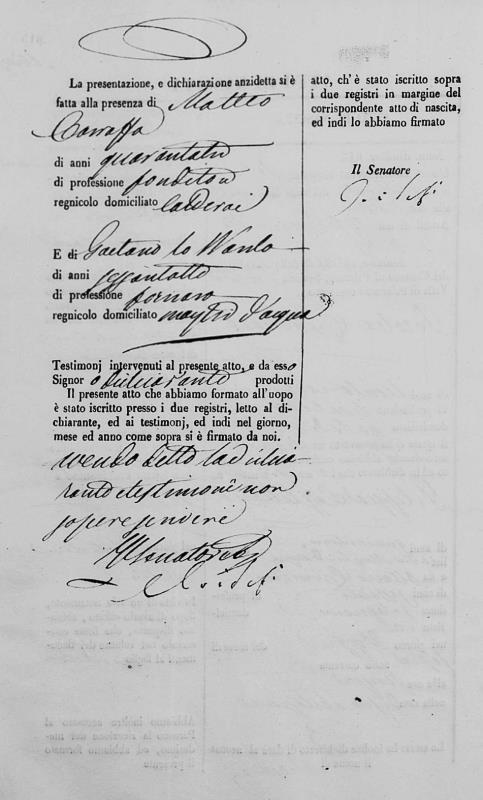 La presentazione, e dichiarazione anzidetta si è
fatta alla presenza di Matteo
Carraffa
di anni quarantatre
di professione fonditore
regnicolo domiciliato Calderai
E di Gaetano lo
di anni sessantotto
di professione fornaro
regnicolo domiciliato mastro d'acqua
Testimonj intervenuti al presente atto, e da esso
Signor o dichiarante prodotti
Il presente atto che abbiamo formato all'uopo
è stato iscritto presso i due registri, letto al di-
chiarante, ed ai testimonj, ed indi nel giorno,
mese ed anno come sopra si è firmato da noi.
avendo detto la dichia
rante e testimoni non
sapere scrivere
Il Senatore
atto, ch' è stato iscritto sopra
i due registri in margine del
corrispondente atto di nascita,
ed indi lo abbiamo firmato
Il Senatore